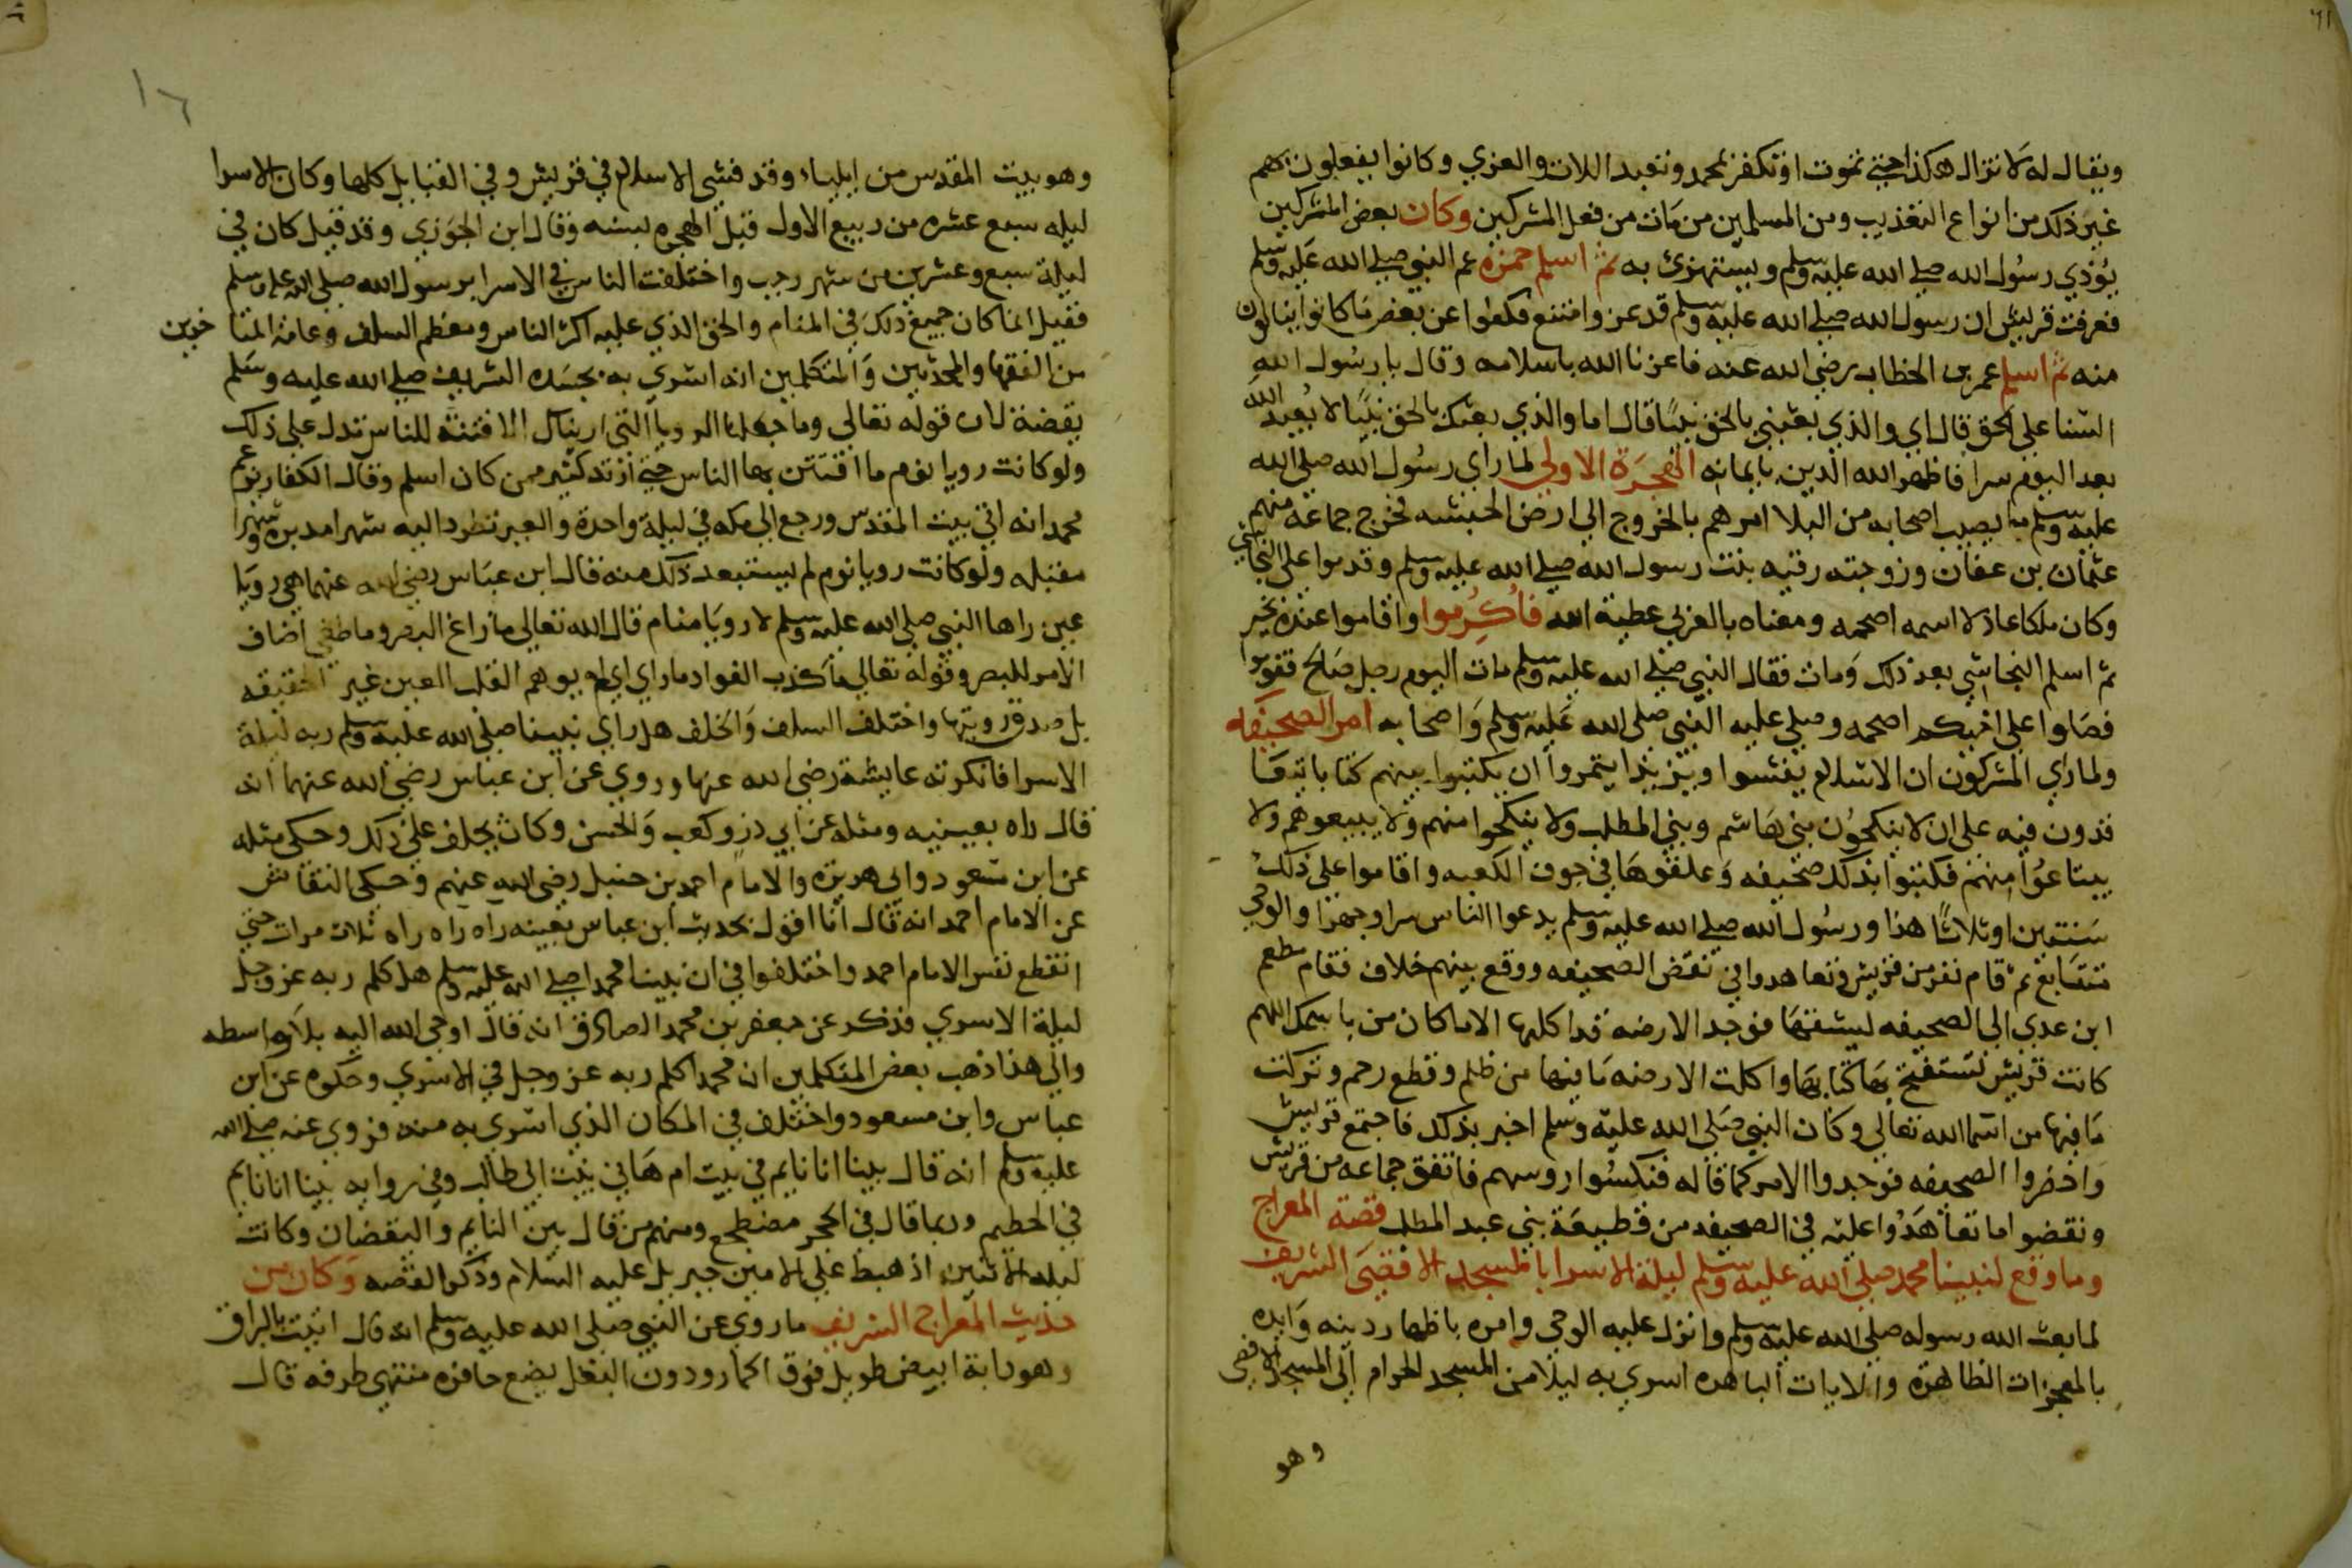 ويقال له لا تزال هكذا حتي تموت او تكفر بمحمد وتعبد اللات والعزي وكانوا يفعلون بهم
غير ذلك من انواع التعذيب ومن المسلمين من مات من فعل المشركين وكان بعض المشركين
يؤذي رسول الله صلي الله عليه وسلم ويستهزئ به ثم اسلم حمزة عم النبي صلي الله عليه وسلم
فعرفت قريش ان رسول الله صلي الله عليه وسلم قد عز وامتنع فكفوا عن بعض ما كانوا ينالون
منه ثم اسلم عمر بن الخطاب رضي الله عنه فاعزنا الله باسلامه وقال يا رسول الله
السنا علي الحق قال اي والذي بعثني بالحق نبيا قال اما والذي بعثك بالحق نبيا لا يعبد الله
بعد اليوم سرا فاظهر الله الدين بايمانه الهجرة الاولي لما راي رسول الله صلي الله
عليه وسلم ما يصيب اصحابه من البلا امرهم بالخروج الي ارض الحبشه فخرج جماعه منهم
عثمان بن عفان وزوجته رقيه بنت رسول الله صلي الله عليه وسلم وقدموا علي النجاشي
وكان ملكا عادلا اسمه اصحمه ومعناه بالعربي عطية الله فاكرموا واقاموا عنده بخير
ثم اسلم النجاشي بعد ذلك ومات فقال النبي صلي الله عليه وسلم مات اليوم رجل صالح فقوموا
فصلوا علي اخيكم اصحمه وصلي عليه النبي صلي الله عليه وسلم واصحابه امر الصحيفه
ولما راي المشركون ان الاسلام يفشوا ويتزيد ايتمروا ان يكتبوا بينهم كتابا يتعا
قدون فيه علي ان لا ينكحون بني هاشم وبني المطلب ولا ينكحوا منهم ولا يبيعوهم ولا
يبتاعوا منهم فكتبوا بذلك صحيفه وعلقوها في جوف الكعبه واقاموا علي ذلك
سنتين او ثلاثا هذا ورسول الله صلي الله عليه وسلم يدعوا الناس سرا وجهرا والوحي
تتتابع ثم قام نفر من قريش وتعاهدوا في نقض الصحيفه ووقع بينهم خلاف فقام مطعم
ابن عدي الي الصحيفه ليشقها فوجد الارضه قد اكلتها الا ما كان من باسمك اللهم
كانت قريش تستفتح بها كتابها واكلت الارضه ما فيها من ظلم وقطع رحم وتركت
ما فيها من اسما الله تعالي وكان النبي صلي الله عليه وسلم اخبر بذلك فاجتمع قريش
واحضروا الصحيفه فوجدوا الامر كما قاله فنكسوا روسهم فاتفق جماعه من قريش
ونقضوا ما تعاهدوا عليه في الصحيفه من قطيعة بني عبد المطلب قصة المعراج
وما وقع لنبينا محمد صلي الله عليه وسلم ليلة الاسرا بالمسجد الاقصي الشريف
لما بعث الله رسوله صلي الله عليه وسلم وانزل عليه الوحي وامره باظهار دينه وايده
بالمعجزات الظاهرة والايات الباهره اسري به ليلا من المسجد الحرام الي المسجد الاقصي
وهو
١٦
وهو بيت المقدس من ايلياء وقد فشي الاسلام في قريش وفي القبايل كلها وكان الاسرا
ليله سبع عشره من ربيع الاول قبل الهجره بسنه وقال ابن الجوزي وقد قيل كان في
ليلة سبع وعشرين من شهر رجب واختلفت الناس في الاسرا برسول الله صلي الله عليه وسلم
فقيل انما كان جميع ذلك في المنام والحق الذي عليه اكثر الناس ومعظم السلف وعامة المتا خرين
من الفقها والمحدثين والمتكلمين انه اسري به بجسده الشريف صلي الله عليه وسلم
يقضة لان قوله تعالي وما جعلنا الرويا التي اريناك الا فتنة للناس تدل علي ذلك
ولو كانت رويا نوم ما افتتن بها الناس حتي ارتد كثير ممن كان اسلم وقال الكفار يزعم
محمد انه اتي بيت المقدس ورجع الي مكه في ليلة واحدة والعير تطرد اليه شهرا مدبره وشهرا
مقبله ولو كانت رويا نوم لم يستبعد ذلك منه قال ابن عباس رضي الله عنهما هي رويا
عين راها النبي صلي الله عليه وسلم لا رويا منام قال الله تعالي ما زاغ البصر وما طغي اضاف
الامر للبصر وقوله تعالي ما كذب الفواد ما راي اي لم يوهم القلب العين غير الحقيقه
بل صدق رويتها واختلف السلف والخلف هل راي نبينا صلي الله عليه وسلم ربه ليلة
الاسرا فانكرته عايشة رضي الله عنها وروي عن ابن عباس رضي الله عنهما انه
قال راه بعينيه ومثله عن ابي ذر وكعب والحسن وكان يحلف علي ذلك وحكي مثله
عن ابن مسعود وابي هريرة والامام احمد بن حنبل رضي الله عنهم وحكي النقاش
عن الامام احمد انه قال انا اقول بحديث ابن عباس بعينه راه راه راه ثلاث مرات حتي
انقطع نفس الامام احمد واختلفوا في ان نبينا محمدا صلي الله عليه وسلم هل كلم ربه عز وجل
ليلة الاسري فذكر عن جعفر بن محمد الصادق انه قال اوحي الله اليه بلا واسطه
والي هذا ذهب بعض المتكلمين ان محمدا كلم ربه عز وجل في الاسري وحكوه عن ابن
عباس وابن مسعود واختلف في المكان الذي اسري به منه فروي عنه صلي الله
عليه وسلم انه قال بينا انا نايم في بيت ام هاني بنت ابي طالب وفي روايه بينا انا نايم
في الحطيم وربما قال في الحجر مضطجع ومنهم من قال بين النايم واليقضان وكانت
ليله الاثنين اذ هبط علي الامين جبريل عليه السلام وذكر القصه وكان من
حديث المعراج الشريف ما روي عن النبي صلي الله عليه وسلم انه قال اتيت بالبراق
وهو دابة ابيض طويل فوق الحمار ودون البغل يضع حافره منتهي طرفه قال